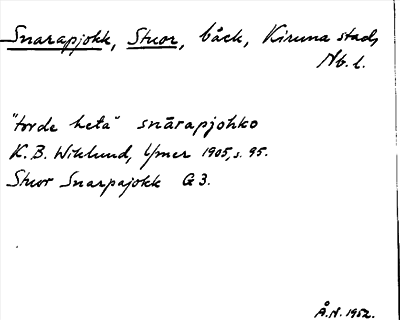 Snarapjokk, Stuor, båck, Kiruna stad,
Nb. l.
"torde heta" snārapjohko
K. B. Wiklund, Ymer 1905, s. 95.
Stuor Snarpajokk G3.
Å.N. 1952.